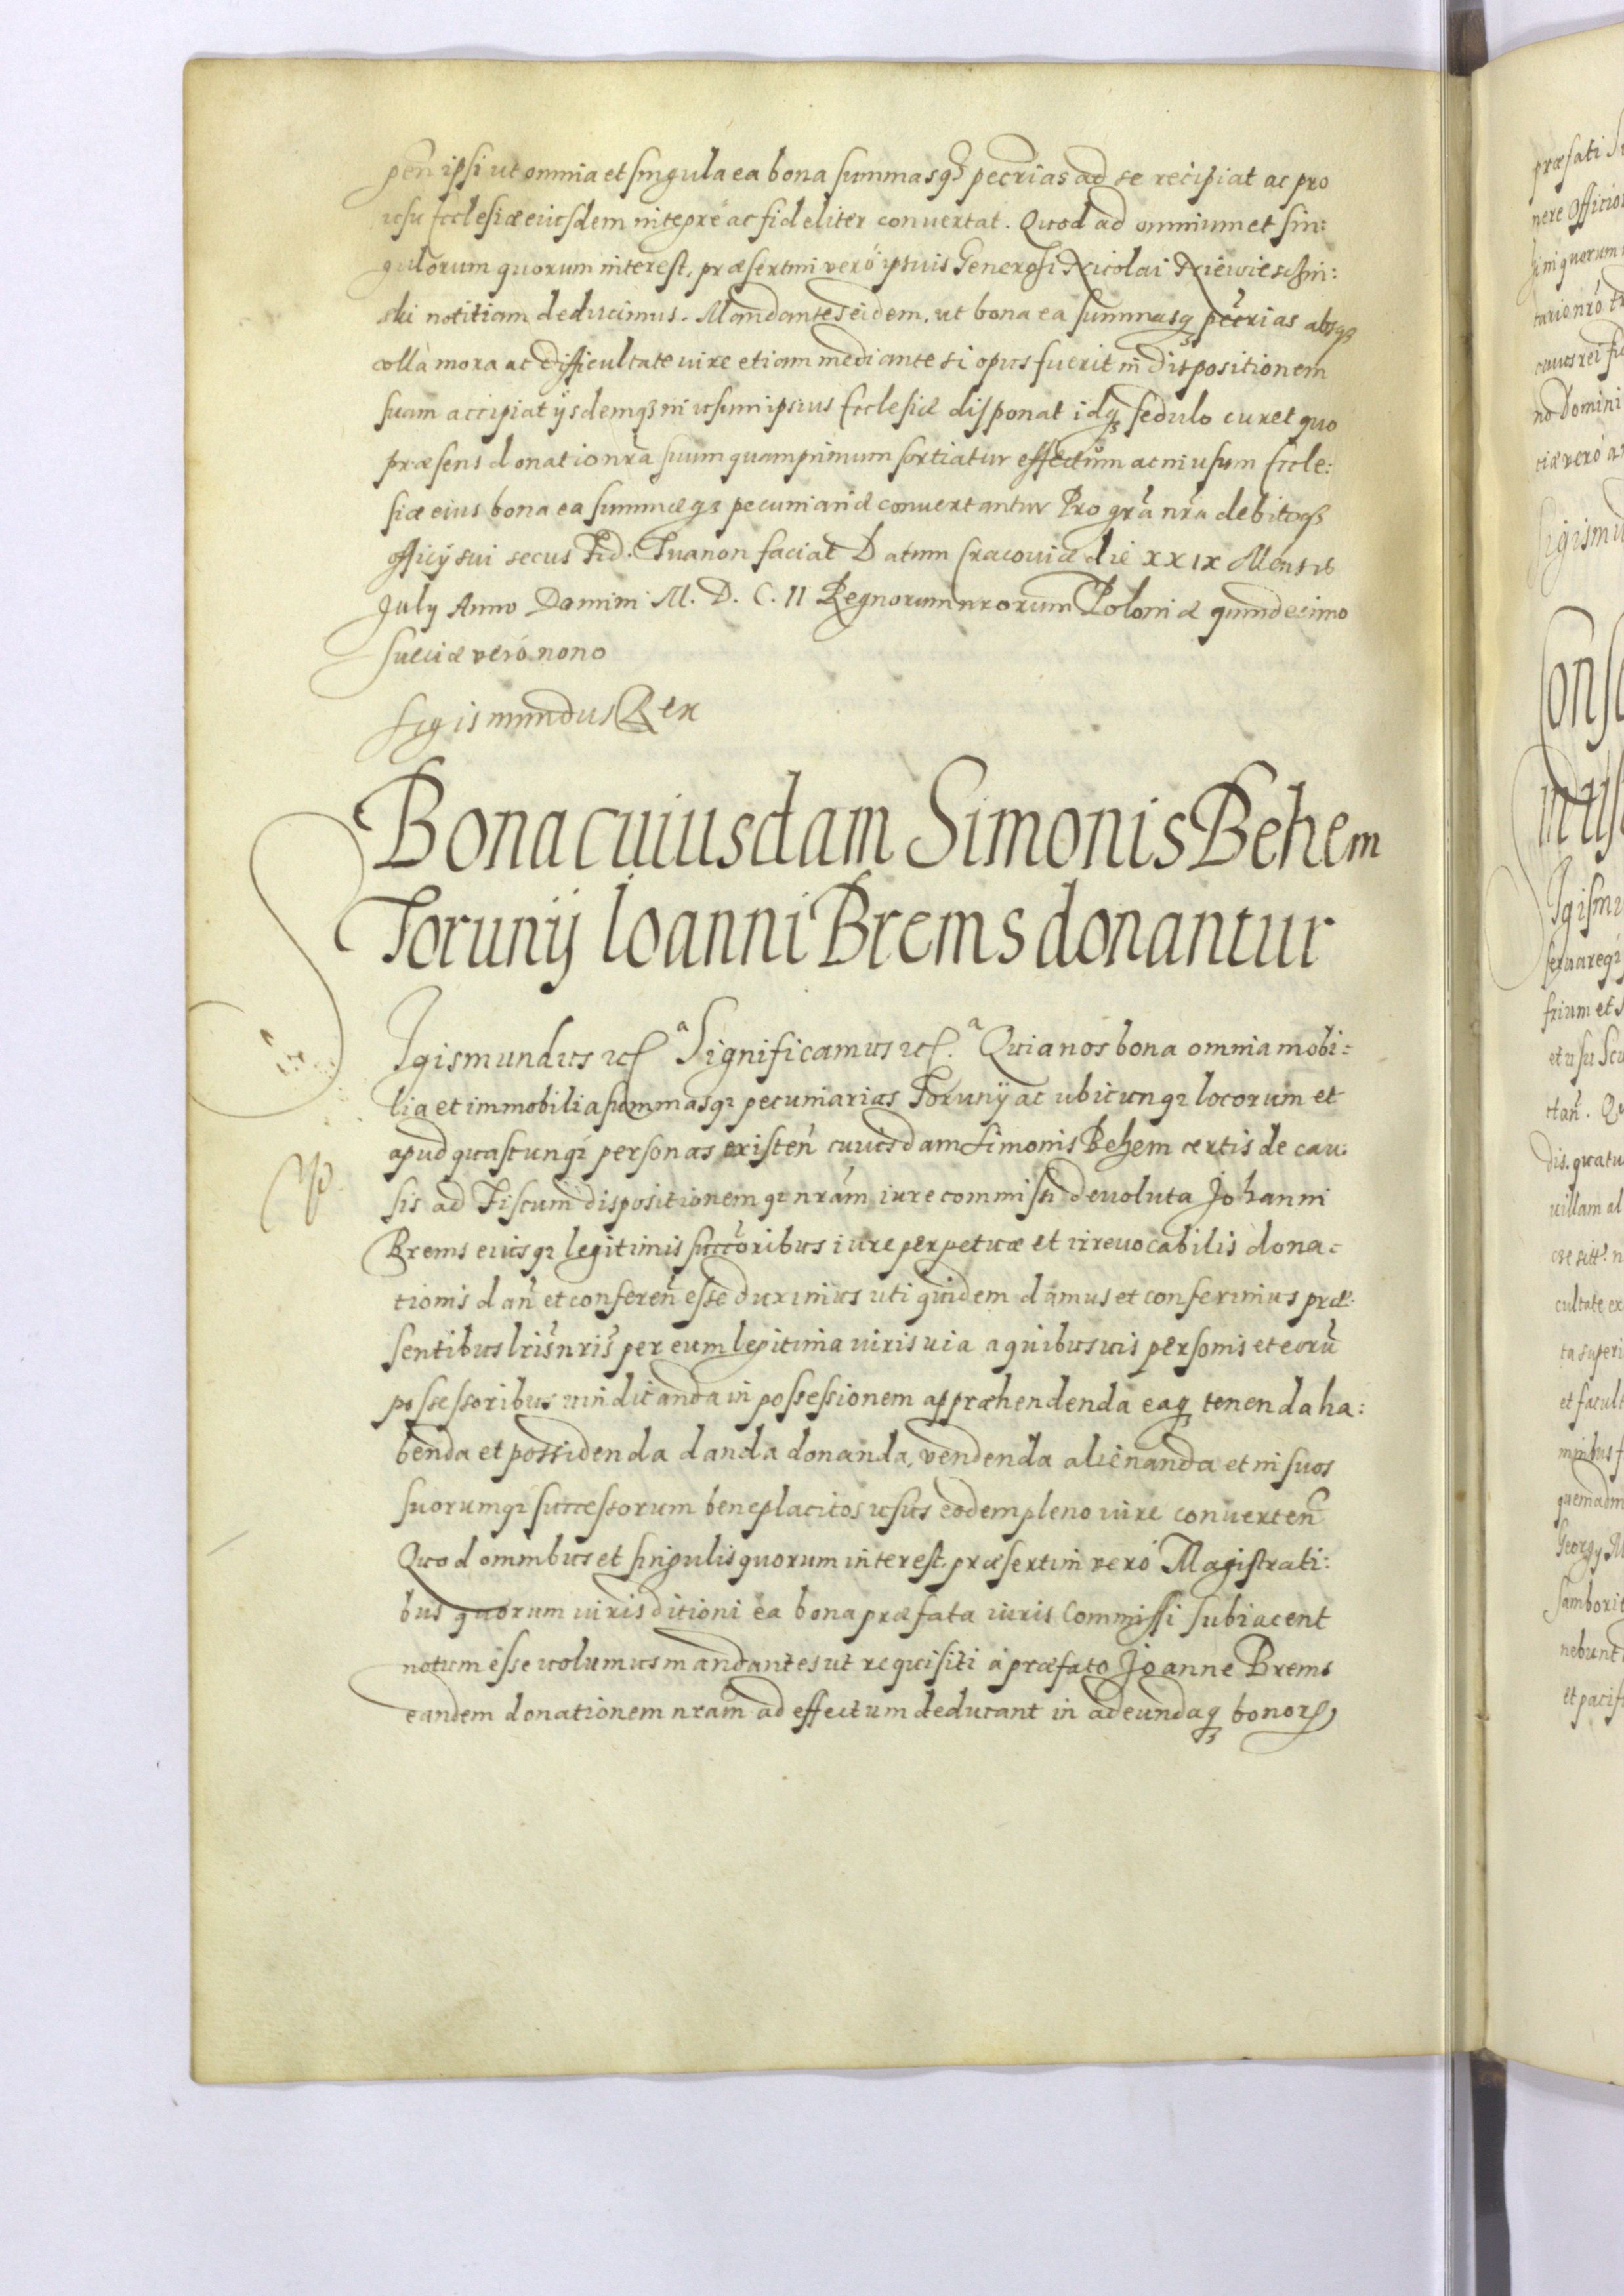 pen̄ ipsi ut omnia et singula ea bona summasq3 pecrias ad se recipiat ac pro
usu Ecclesiæ eiusdem integre ac fideliter convertat. Quod ad omnium et sin:
gulorum quorum interest, præsertim verò ipsius Generosi Nicolai Niewiescin:
ski notitiam deducimus. Mandantes eidem, ut bona ea summasq3 pecrias absq3
ulla mora ac difficultate iure etiam mediante si opus fuerit in dispositionem
suam accipiat ijsdemq3 in usum ipsius Ecclesiæ disponat idq3 sedulo curet quo
præsens donatio nr̄a suum quamprimum sortiatur effectum ac in usum Eccle:
siæ eius bona ea summæq3 pecuniariæ convertantur Pro gr̄a nr̄a debitoq3
officij sui secus Fid. Tua non faciat Datum Cracoviæ die XXIX Mensis
July Anno Domini M. D. C. II Regnorum nrorum Poloniæ quindecimo
Sueciæ verò nono
Sigismundus Rex
Bona cuiusdam Simonis Behem
Torunij Ioanni Brems donantur
Sigismundus etc. Significamus etc. Quia nos bona omnia mobi:
lia et immobilia summasq3 pecuniarias Torunij ac ubicunq3 locorum et
apud quascunq3 personas existen̄ cuiusdam Simonis Behem certis de cau:
sis ad Fiscum dispositionemq3 nrām iure commissi devoluta Johanni
Brems eiusq3 legitimis succōribus iure perpetuæ et irrevocabilis dona:
tionis dan̄ et conferen̄ esse duximus uti quidem damus et conferimus præ:
sentibus lris̄ nris̄ per eum legitima iuris via a quibusvis personis et eorū
possessoribus vindicanda in possessionem appræhendenda eaq3 tenenda ha:
benda et possidenda danda donanda, vendenda alienanda et in suos
suorumq3 successorum beneplacitos usus eodem pleno iure converten̄
Quod omnibus et singulis quorum interest præsertim verò Magistrati:
bus quorum iurisditioni ea bona præfata iuris Commissi subiacent
notum esse volumus mandantes ut requisiti à præfato Joanne Brems
eandem donationem nram̄ ad effectum deducant in adeundaq3 bonorꝝ